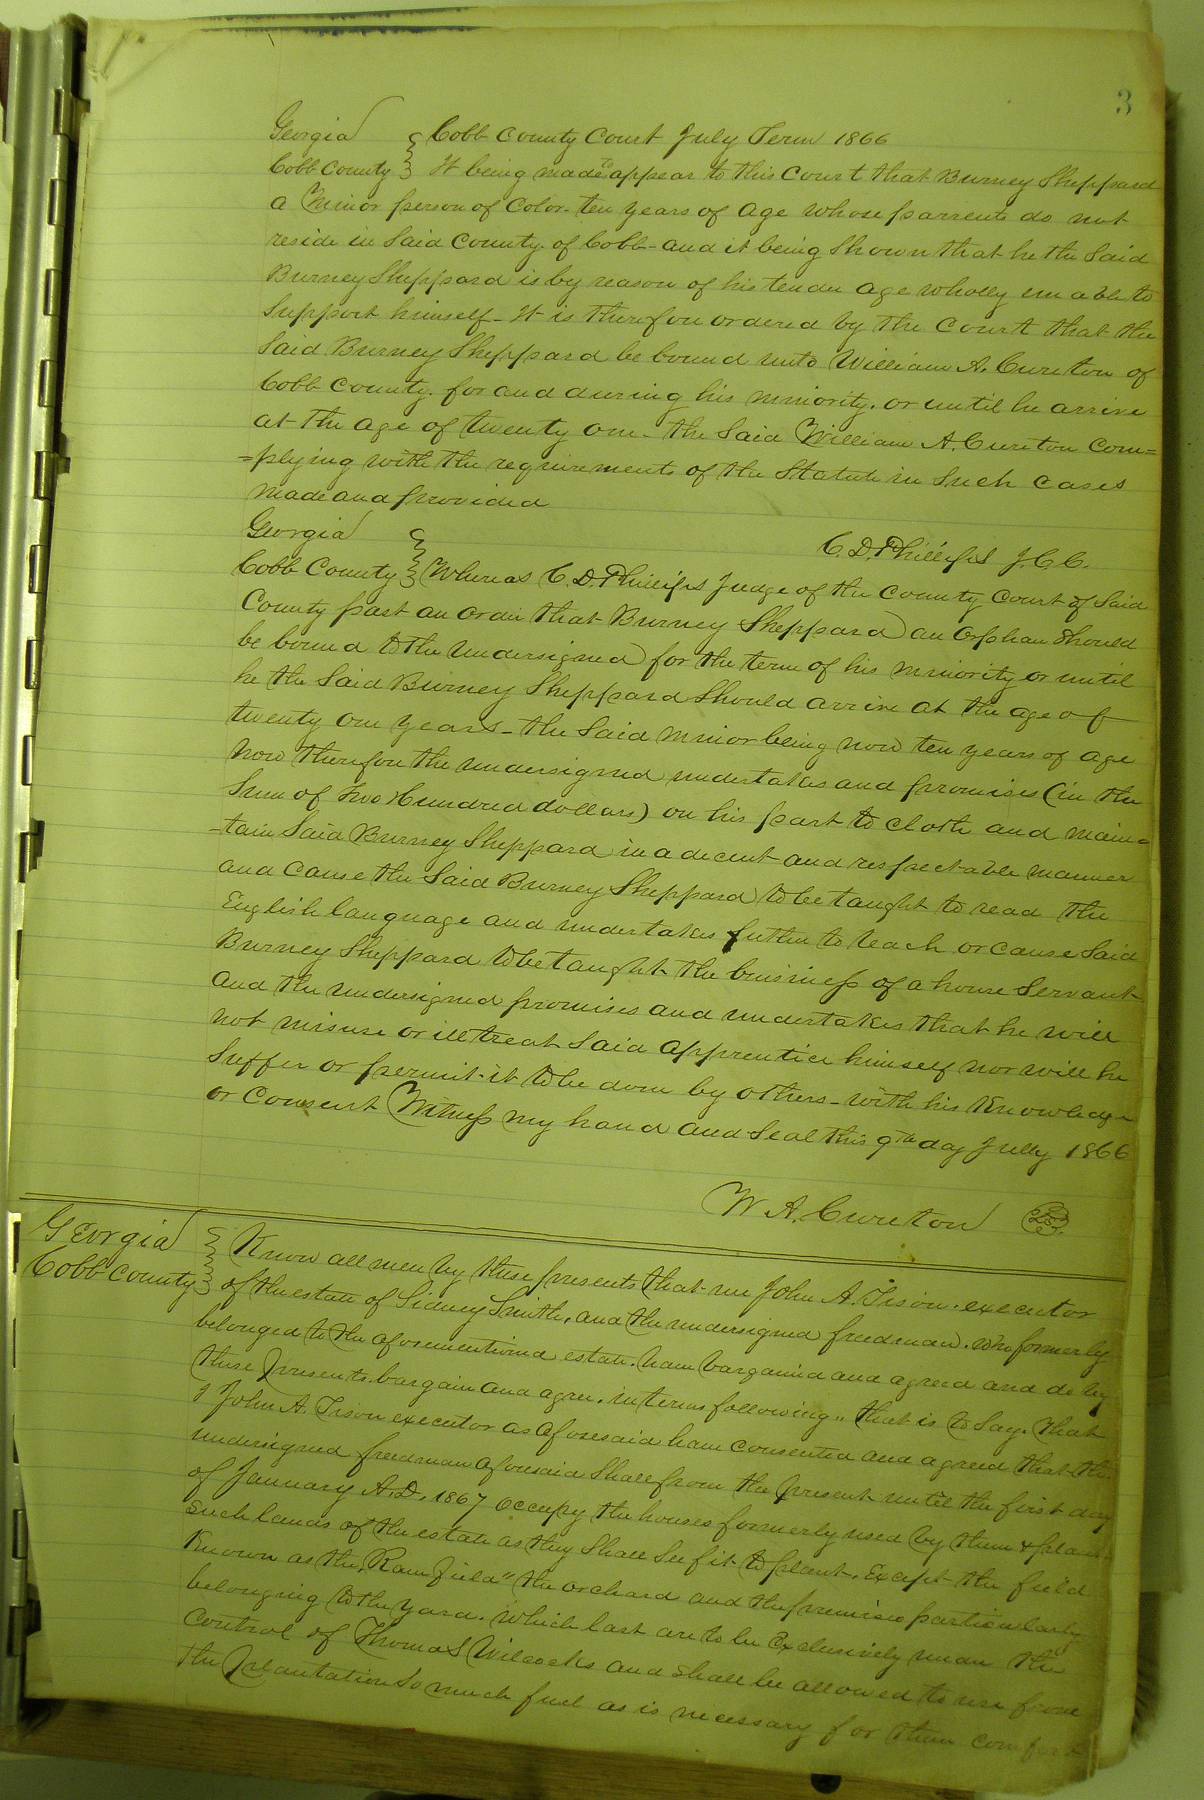 3
Georgia } Cobb County Court July Term 1866
Cobb County } It being made to appear to this Court that Burney Sheppard
a Minor person of Color ten years of age whose parrents do not
reside in Said County of Cobb and it being Shown that he the Said
Burney Sheppard is by reason of his tender age wholly unable to
Support himself - It is therefore ordered by the Court that the
Said Burney Sheppard be bound unto William A. Cureton of
Cobb County. for and during his minority. or until he arrive
at the age of twenty one - the Said William A. Cureton Com=
=plying with the requirements of the Statute in Such cases
made and provided
C. D. Phillips J.C.C.
Georgia }
Cobb County } Whereas C. D. Phillips Judge of the County Court of Said
County past an order that Burney Sheppard an Orphan Should
be bound to the undersigned for the term of his minority or until
he the Said Burney Sheppard Should arrive at the age of
twenty one years - the Said minor being now ten years of age
Now therefore the undersigned undertakes and promises (in the
Sum of Two Hundred dollars) on his part to cloth and main=
-tain Said Burney Sheppard in a decent and respectable manner
and cause the Said Burney Sheppard to be taught to read the
English language and undertakes futher to teach or cause Said
Burney Sheppard to be taught the buisiness of a house Servant
and the undersigned promises and undertakes that he will
not misuse or illtreat Said apprentice himself nor will he
Suffer or permit it to be done by others - with his Knowledge
or Consent Witness my hand and Seal this 9th day Jully 1866
W A. Cureton L.S.
Georgia } Know all men by these presents that we John A. Tison. executor
Cobb County } of the estate of Sidney Smith, and the undersigned freedman. who formerly
belonged to the aforementioned estate. have bargained and agreed and do by
these presents. bargain and agree. in terms following,, that is to Say. that
I John A. Tison executor as aforesaid have consented and agreed that the
undersigned freedman aforesaid Shall from the present until the first day
of January A.D. 1867 occupy the houses formerly used by them & plant
such lands of the estate as they Shall See fit to plant. Except the field
Known as the "Ram field" the orchard and the premises particularly
belonging to the yard. which last are to be Exclusively under the
Control of Thomas Wilcocks and shall be allowed to use from
the plantation So much fuel as is necessary for their comfort